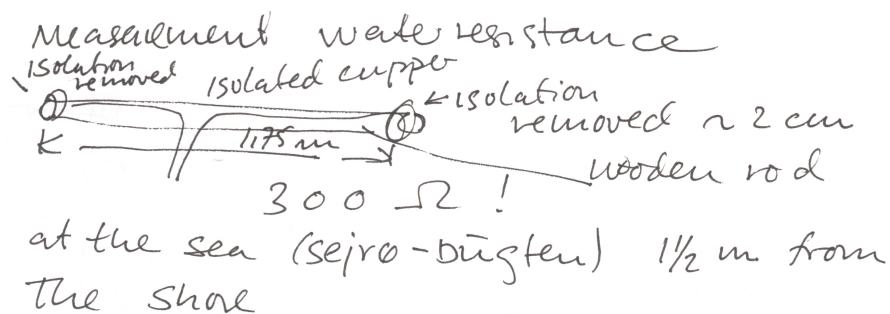 Measurement water resistance
isolation removed isolated cupper
←isolation removed ~ 2 cm
1,75 m
wooden rod
300 Ω !
at the sea (sejrø-bŭgten) 1½ m from
the shore